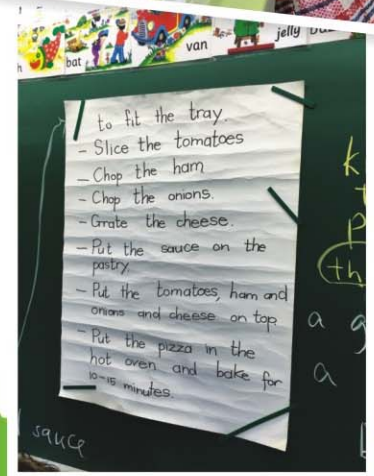 bat
van
jelly
to fit the tray.
- Slice the tomatoes
- Chop the ham
- Chop the onions.
- Grate the cheese.
- Put the sauce on the
pastry.
- Put the tomatoes, ham and
onions and cheese on top
- Put the pizza in the
hot oven and bake for
10-15 minutes.
k
P
th
a g
a
sauce